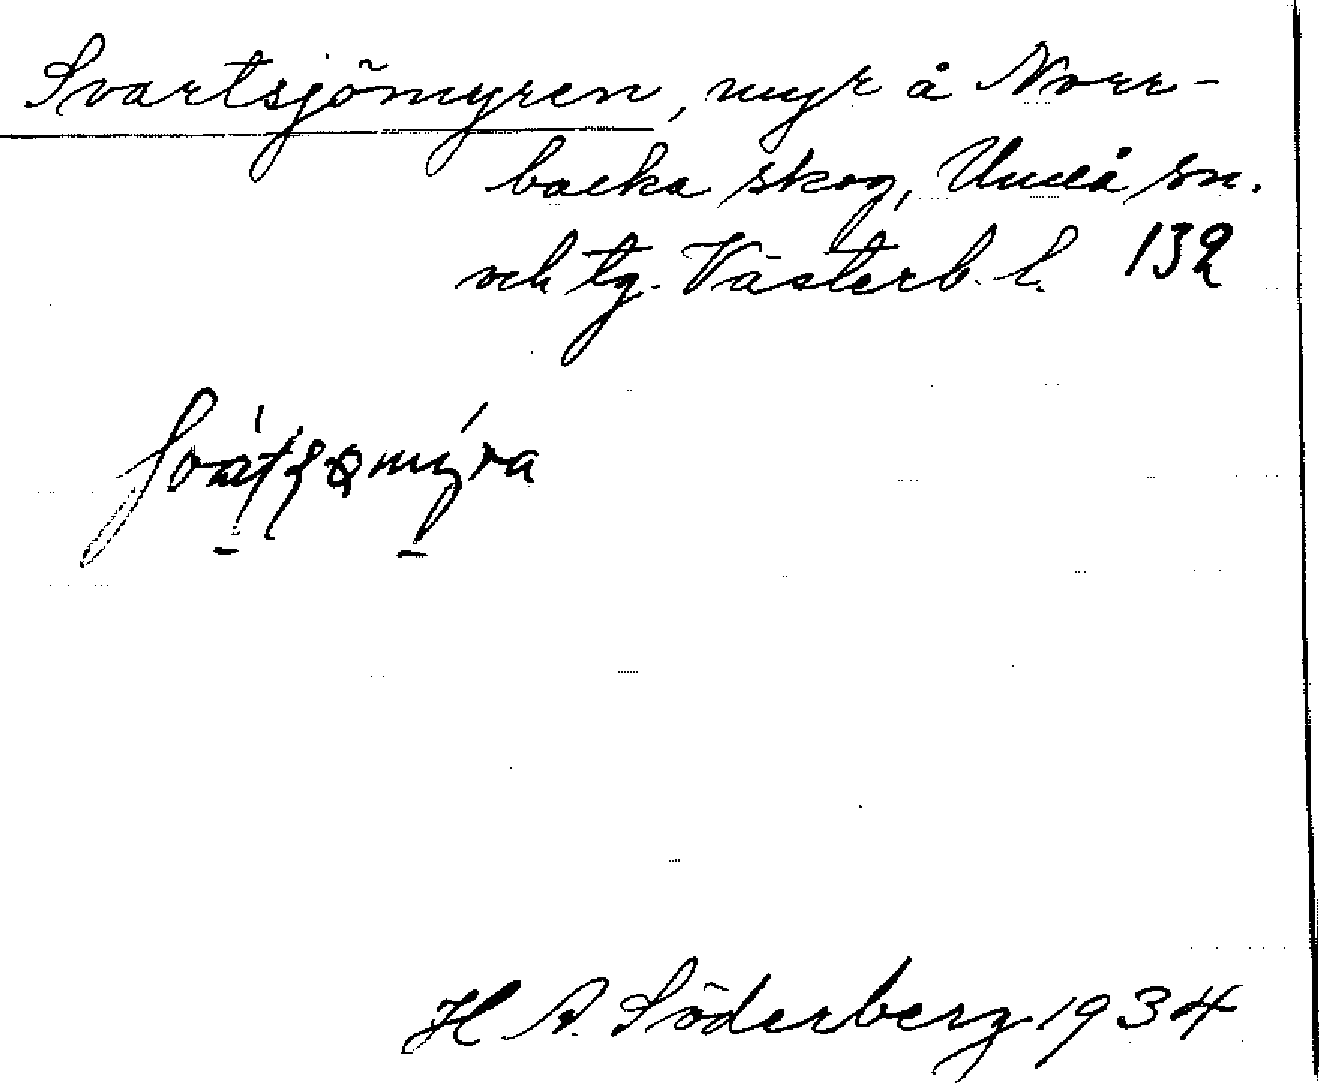 Svartsjömyren, myr å Norr-
backa skog, Umeå sn.
och tg. Västerb. l. 132
H A. Söderberg 1934